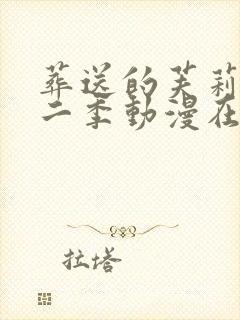 葬送的芙莉
二季動漫在
拉塔